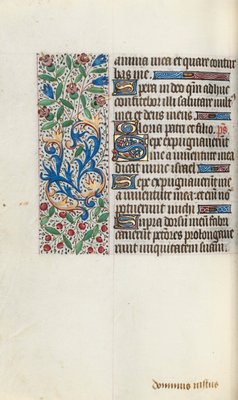 anima mea et quare contur
bas me.
Spera in deo qm̄ adhuc
confitebor illi salutare vult⁹
mei et deus meus. ps
Gloria patri et filio.
Sepe expugnauerūt me
a iuuentute mea
dicat nunc israel
Sepe expugnauerūt me
a iuuentute mea et eni nō
potuerunt michi
Supra dorsū meū fabri
cauerūt pctores prolongaue
runt iniquitatem suam.
dominus iustus